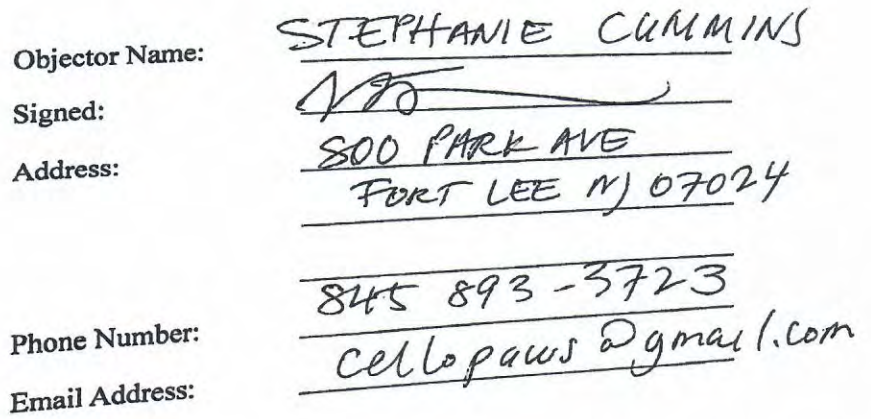 Objector Name: STEPHANIE CUMMINS
Signed:
Address: 800 PARK AVE
FORT LEE NJ 07024
Phone Number: 845 893-3723
Email Address: cellopaws@gmail.com